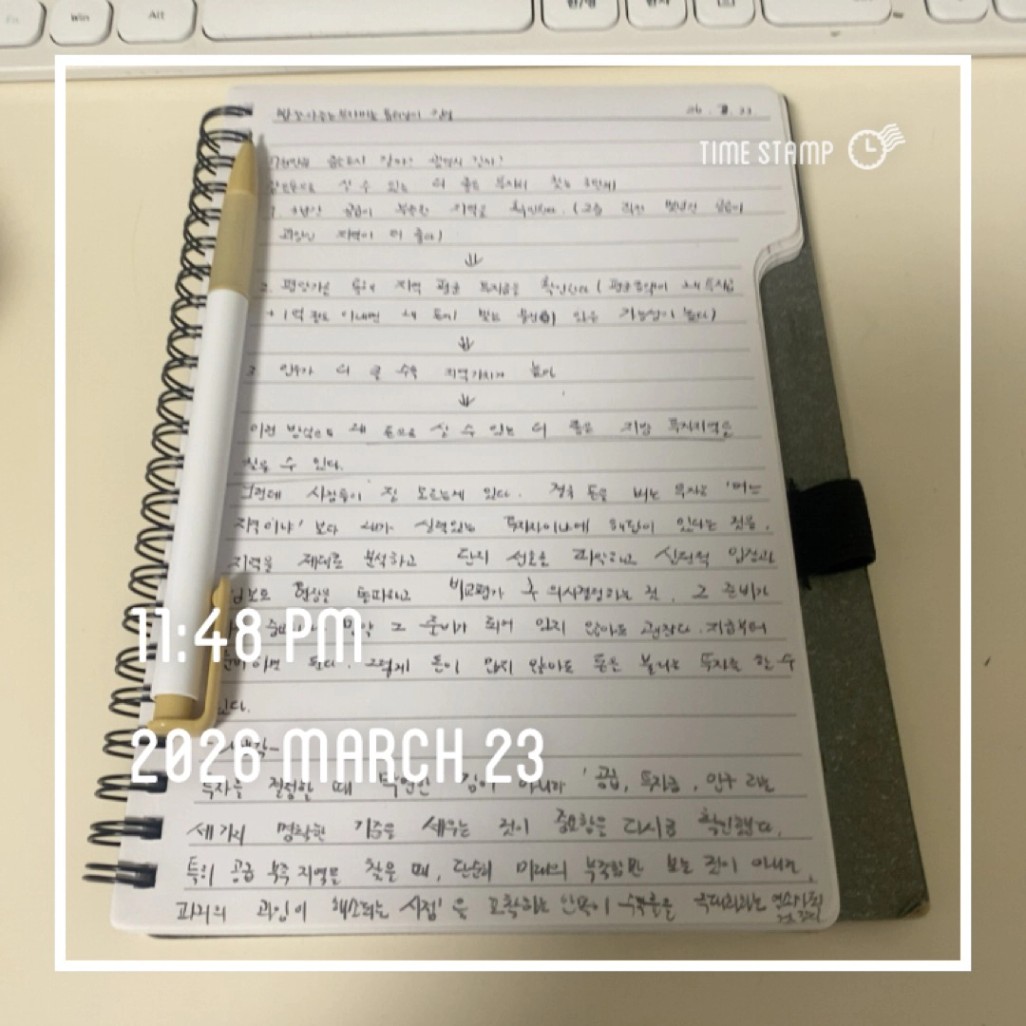 Win Alt 한/영 한자
26. 3. 23
TIME STAMP
살 수 있는 더 좋은 찾는 3단계
1. 공급이 부족한 지역을 확인한다. (
과잉인 지역이 더 좋다)
↓
2. 평단가를 통해 지역 평균 투자금을 확인한다 (
+ 1억 정도 이내면 내 돈에 맞는 물건이 있을 가능성이 높다)
↓
3. 인구가 더 클 수록 지역가치가 높다
↓
이런 방식으로 내 돈으로 살 수 있는 더 좋은 지방 투자지역을
찾을 수 있다.
그런데 사람들이 잘 모르는게 있다. 결국 돈을 버는 투자는 '어느
지역이냐' 보다 내가 실력있는 투자자이냐에 해답이 있다는 것을.
지역을 제대로 분석하고 단지 선호를 파악하고 심리적 입장과
비교평가 후 의사결정하는 것. 그 준비가
만약 그 준비가 되어 있지 않아도 괜찮다. 지금부터
준비하면 된다. 그렇게 돈이 많지 않아도 돈을 불리는 투자를 할 수
있다.
11:48 PM
2026 MARCH 23
투자를 결정할 때 막연한 감이 아니라 '공급, 투자금, 인구'라는
세가지 명확한 기준을 세우는 것이 중요함을 다시금 확인했다.
특히 공급 부족 지역을 찾을 때, 단순히 미래의 부족함만 보는 것이 아니라,
과거의 과잉이 해소되는 시점'을 포착하는 안목이 수익률을 극대화하는